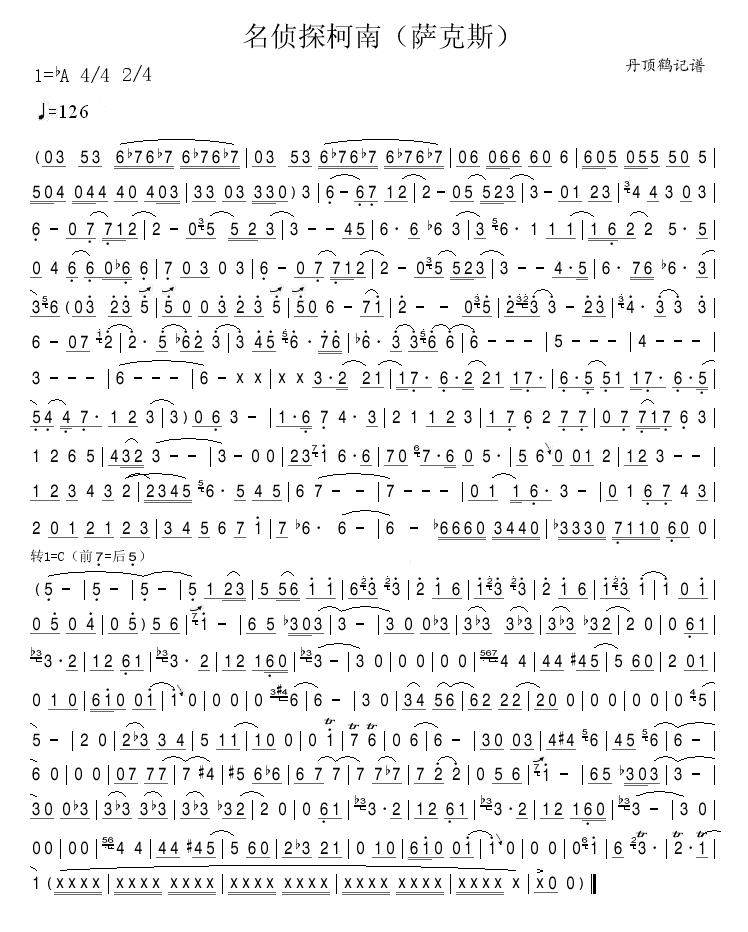 名侦探柯南（萨克斯）
1=♭A 4/4 2/4
丹顶鹤记谱
♩=126
(03 53 6♭76♭7 6♭76♭7|03 53 6♭76♭7 6♭76♭7|06 066 60 6|605 055 50 5
504 044 40 403|33 03 330)3|6-67 12|2-05 523|3-01 23|34 4 3 03
6-07 712|2-035 5 2 3|3--45|6· 6 ♭6 3|3 56· 1 1 1|1 6 2 2 5·5
0 4 6 6 0♭6 6|7 0 3 0 3|6-07 712|2-035 523|3--4·5|6· 76 ♭6·3
356(03 23 5|5 00 3 2 3 5|50 6-71|2--035|2323 3-23|34· 3 3 3
6-07 12|2· 5 ♭62 3|3 45 56· 76|♭6· 3 356 6|6---|5---|4---
3---|6---|6-x x|x x 3·2 21|17· 6·2 21 17·|6·5 51 17· 6·5
54 4 7· 1 2 3|3)0 6 3-|1·6 7 4·3|2 1 1 2 3|1 7 6 2 7 7|0 7 7176 3
1 2 6 5|432 3---|3-0 0|2371 6·6|70 67·6 0 5·|5 60 01 2|12 3--
1 2 3 4 3 2|2345 56· 5 4 5|6 7--|7--|0 1 1 6·3-|0 1 6 7 4 3
2 0 1 2 1 2 3|3 4 5 6 7 1|7 ♭6· 6-|6-♭6660 3440|♭3330 7110 60 0
转1=C（前7=后5）
(5-|5-|5-|5-|5 1 23|5 56 1 1|6323 323|2 1 6|1323 323|2 1 6|1323 1|1 0 1
0 5 0 4|0 5)5 6|71-|6 5 ♭303|3-|3 0 0♭3|3♭3 3♭3|3♭3 ♭32|2 0|0 61
♭33·2|12 61|♭33·2|12 160|♭33-|3 0|0 0|0 0|5674 4|44 #45|5 60|2 01
0 1 0|610 01|1 0|0 0|0 3#46|6-|3 0|34 56|62 22|20 0|0 0|0 0|0 45
5-|2 0|2♭3 3 4|5 11|10 0|0 1|7 6|06 6-|30 03|4#4 56|45 56|6-|
6 0|0 0|07 77|7 #4|#5 6♭6|6 7 7|7 7♭7|7 2 2|0 5 6|71-|65 ♭303|3-|
30 0♭3|3♭3 3♭3|3♭3 ♭32|2 0|0 61|♭33·2|12 61|♭33·2|12 160|♭33-|3 0|
00|00|564 4|44 #45|5 60|2♭3 21|0 10|610 01|1 0|0 0|0 061|6 23·|2·1|
1(x x x x|x x x x|x x x x|x x x x|x x x x x|x0 0)‖